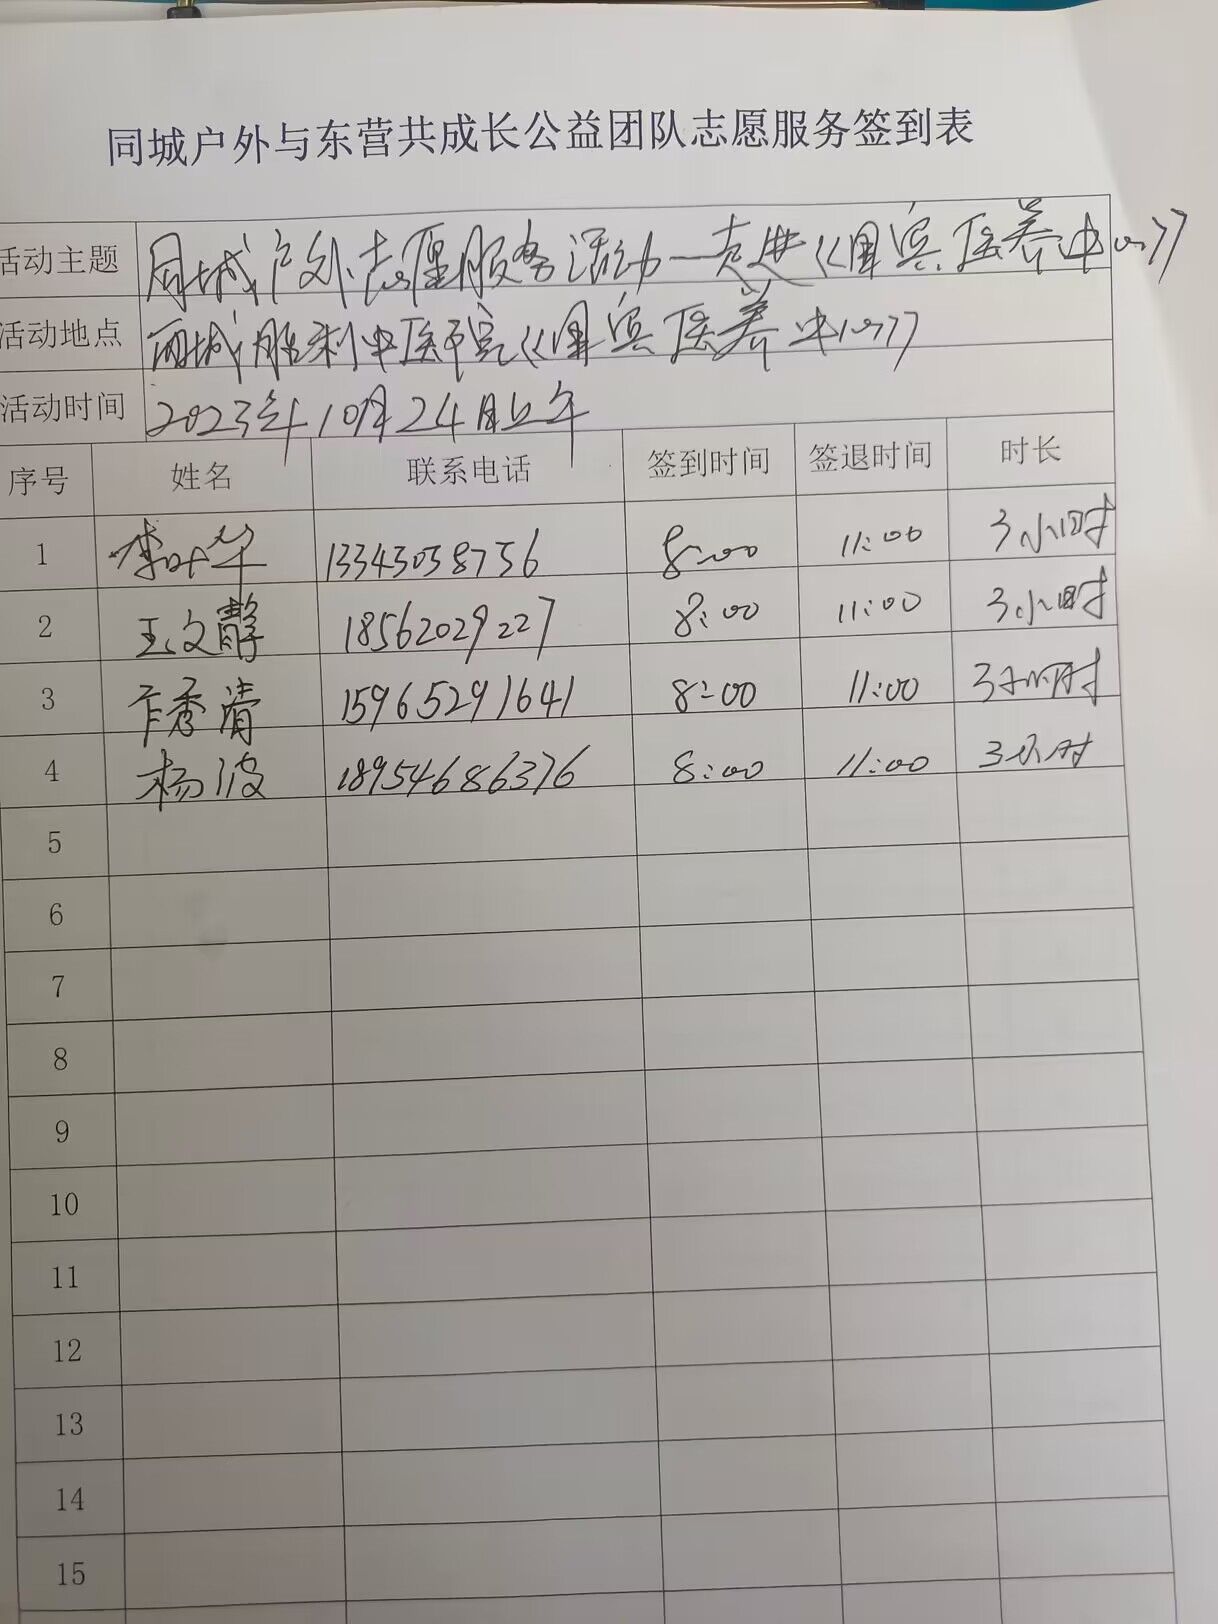 同城户外与东营共成长公益团队志愿服务签到表
活动主题 同城户外志愿服务活动—走进《国宾医养中心》
活动地点 西城胜利中医院《国宾医养中心》
活动时间 2023年10月24日上午
序号 姓名 联系电话 签到时间 签退时间 时长
1 李叶华 13345058756 8:00 11:00 3小时
2 王文静 18562029227 8:00 11:00 3小时
3 秀清 15965291641 8:00 11:00 3小时
4 杨波 18954686376 8:00 11:00 3小时
5
6
7
8
9
10
11
12
13
14
15